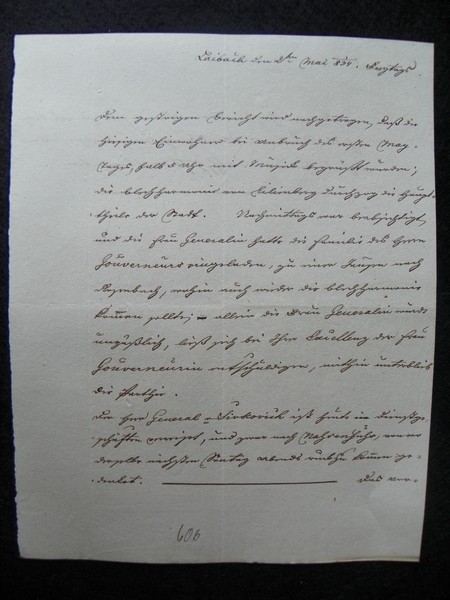 Laibach den 2ten Mai 834. Freytags.
Dem gestrigen Bericht wird nachgetragen, daß die
hiesigen Einwohner bei Anbruch des ersten May-
tages, halb 5 Uhr mit Musick begrüßt wurden;
die Blechharmonie von durchzog die Haupt-
theile der Stadt. Nachmittags war beabsichtigt,
und die Frau Generalin hatte die Familie des Herrn
Gouverneurs eingeladen, zu einer Jausen nach
Rosenbach, wohin auch wieder die Blechharmonie
kommen sollte; – allein die Frau Generalin wurde
unpäßlich, ließ sich bei Ihre Excellenz der Frau
Gouverneurin entschuldigen, mithin unterblieb
die Parthie.
Der Herr General ist heute in Dienstge-
schäften verreiset, und zwar nach
derselbe nächsten Sontag abends zu kommen ge-
denket. Das
606